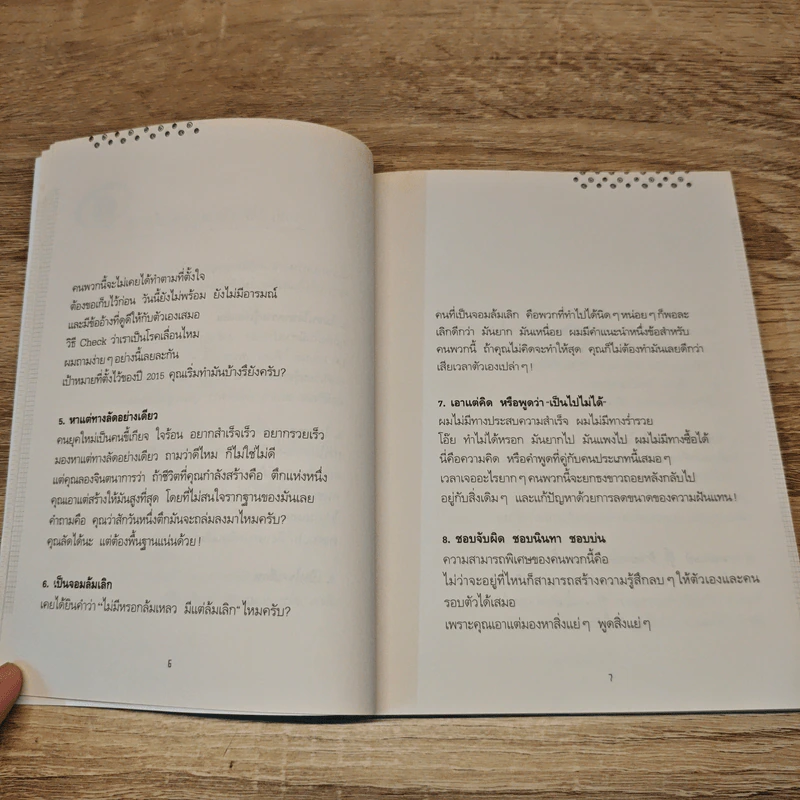 คนพวกนี้จะไม่เคยได้ทำตามที่ตั้งใจ
ต้องขอเก็บไว้ก่อน วันนี้ยังไม่พร้อม ยังไม่มีอารมณ์
และมีข้ออ้างที่ดูดีให้กับตัวเองเสมอ
วิธี Check ว่าเราเป็นโรคเลื่อนไหม
ผมถามง่ายๆอย่างนี้เลยละกัน
เป้าหมายที่ตั้งไว้ของปี 2015 คุณเริ่มทำมันบ้างรึยังครับ?
5. หาแต่ทางลัดอย่างเดียว
คนยุคใหม่เป็นคนขี้เกียจ ใจร้อน อยากสำเร็จเร็ว อยากรวยเร็ว
มองหาแต่ทางลัดอย่างเดียว ถามว่าดีไหม ก็ไม่ใช่ไม่ดี
แต่คุณลองจินตนาการว่า ถ้าชีวิตที่คุณกำลังสร้างคือ ตึกแห่งหนึ่ง
คุณเอาแต่สร้างให้มันสูงที่สุด โดยที่ไม่สนใจรากฐานของมันเลย
คำถามคือ คุณว่าสักวันหนึ่งตึกมันจะถล่มลงมาไหมครับ?
คุณลัดได้นะ แต่ต้องพื้นฐานแน่นด้วย!
6. เป็นจอมล้มเลิก
เคยได้ยินคำว่า "ไม่มีหรอกล้มเหลว มีแต่ล้มเลิก" ไหมครับ?
6
คนที่เป็นจอมล้มเลิก คือพวกที่ทำไปได้นิดๆหน่อยๆก็พอละ
เลิกดีกว่า มันยาก มันเหนื่อย ผมมีคำแนะนำหนึ่งข้อสำหรับ
คนพวกนี้ ถ้าคุณไม่คิดจะทำให้สุด คุณก็ไม่ต้องทำมันเลยดีกว่า
เสียเวลาตัวเองเปล่าๆ!
7. เอาแต่คิด หรือพูดว่า -เป็นไปไม่ได้-
ผมไม่มีทางประสบความสำเร็จ ผมไม่มีทางร่ำรวย
โอ๊ย ทำไม่ได้หรอก มันยากไป มันแพงไป ผมไม่มีทางซื้อได้
นี่คือความคิด หรือคำพูดที่คู่กับคนประเภทนี้เสมอๆ
เวลาเจออะไรยากๆคนพวกนี้จะยกธงขาวถอยหลังกลับไป
อยู่กับสิ่งเดิมๆ และแก้ปัญหาด้วยการลดขนาดของความฝันแทน!
8. ชอบจับผิด ชอบนินทา ชอบบ่น
ความสามารถพิเศษของคนพวกนี้คือ
ไม่ว่าจะอยู่ที่ไหนก็สามารถสร้างความรู้สึกลบๆให้ตัวเองและคน
รอบตัวได้เสมอ
เพราะคุณเอาแต่มองหาสิ่งแย่ๆ พูดสิ่งแย่ๆ
7